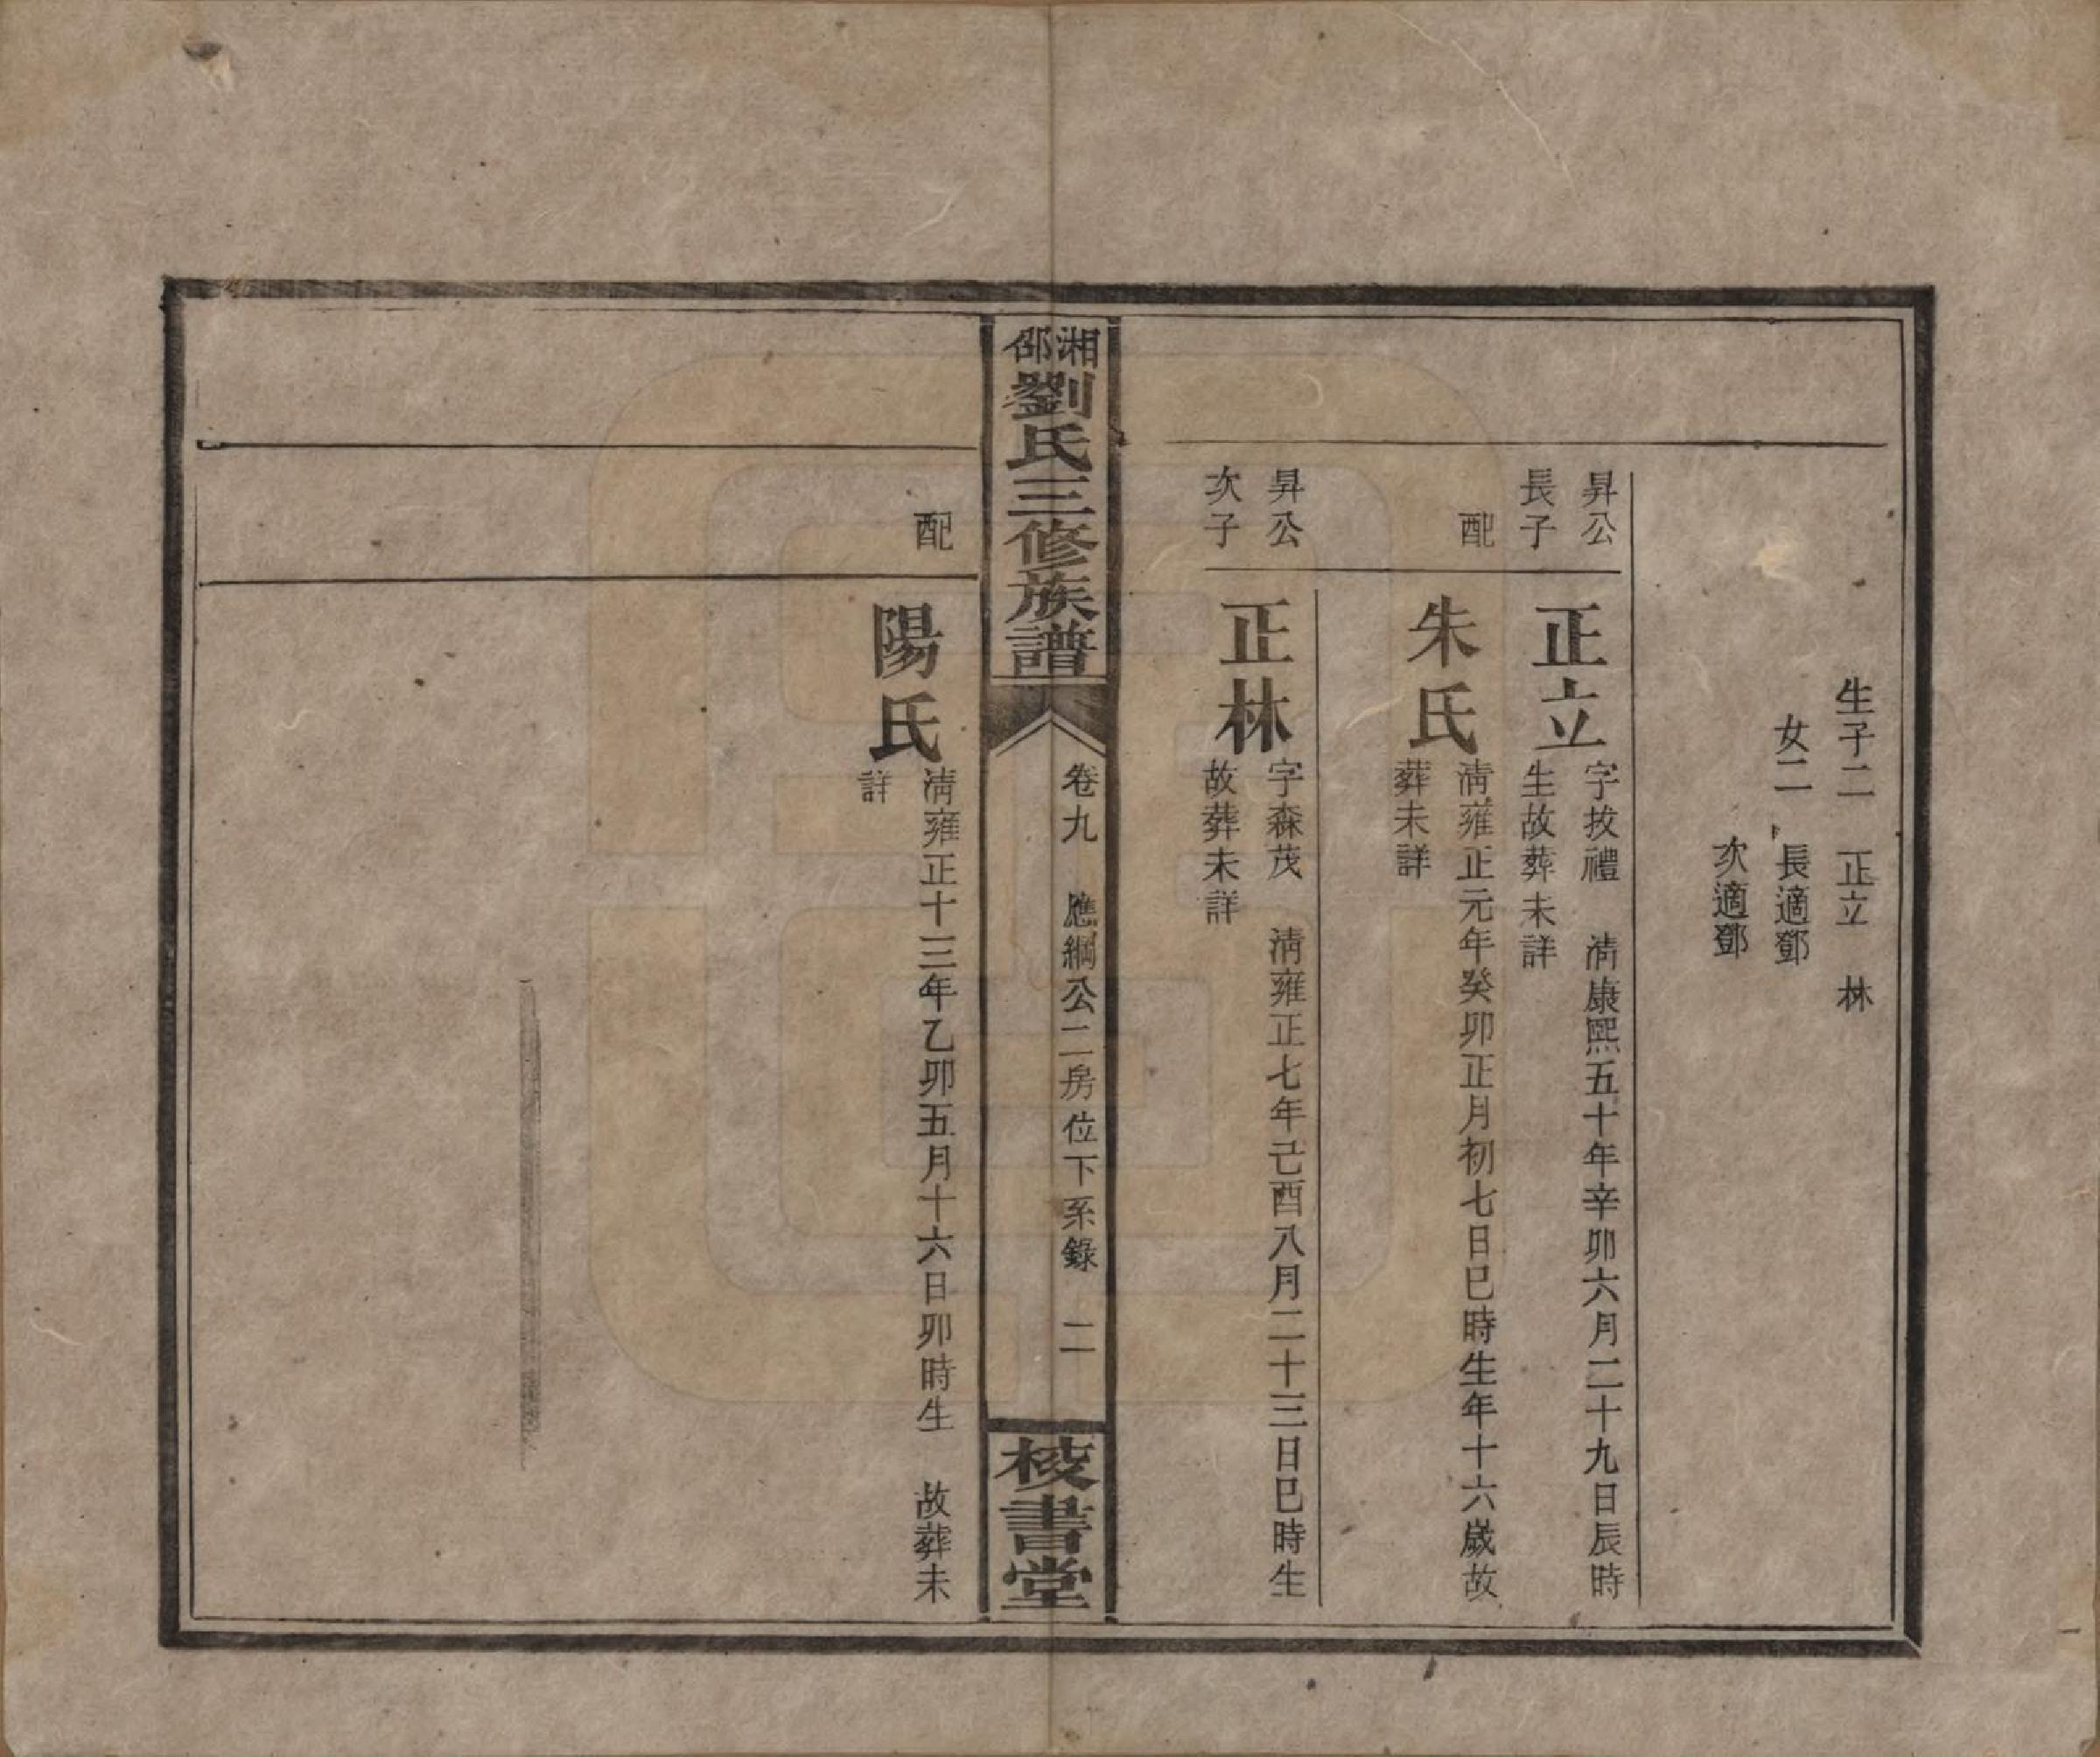 生子二　正立　林
女二　長適鄧
次適鄧
昇公
長子
正立
字拔禮　清康熙五十年辛卯六月二十九日辰時
生故葬未詳
配
朱氏
清雍正元年癸卯正月初七日巳時生年十六歲故
葬未詳
昇公
次子
正林
字森茂　清雍正七年己酉八月二十三日巳時生
故葬未詳
湘邵劉氏三修族譜
卷九　應綱公二房位下系錄　二
校書堂
配
陽氏
清雍正十三年乙卯五月十六日卯時生　故葬未
詳